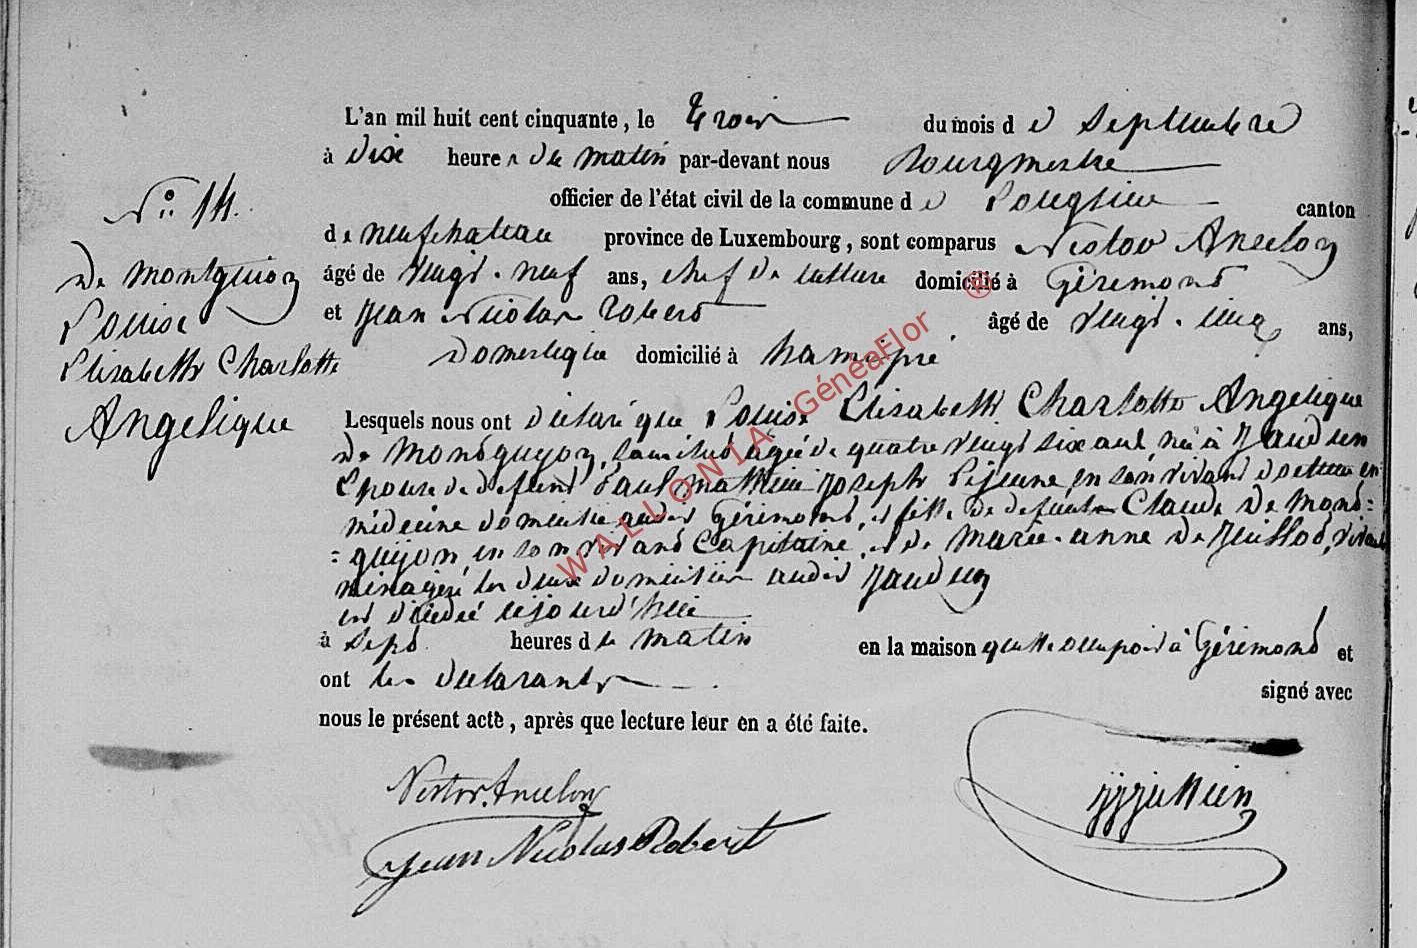 L'an mil huit cent cinquante, le trois du mois de Septembre
à dix heures du matin par-devant nous Bourgmestre
officier de l'état civil de la commune de Longlier canton
de neufchateau province de Luxembourg, sont comparus Nestor Ancelon
âgé de vingt-neuf ans, chef de culture domicilié à Gérimont
et Jean Nicolas Robert âgé de vingt-cinq ans,
Domestique domicilié à hamipré
Lesquels nous ont déclaré que Louise Elisabeth Charlotte Angelique
de Montguyon, agée de quatre vingt six ans, née à
Epouse de defunt Paul Mathieu Joseph Lejeune, en son vivant docteur en
médecine domicilié audit Gérimont, et fille de defunts Claude de Mont=
=guyon, en son vivant Capitaine, et de Marie-anne de
ménagère les deux domiciliés audit
est décédée cejourd'hui
à sept heures du matin en la maison qu'elle occupoit à Gérimont et
ont les déclarants signé avec
nous le présent acte, après que lecture leur en a été faite.
N° 14.
De Montguion
Louise
Elisabeth Charlotte
Angelique
Nestor Ancelon
Jean Nicolas Robert
WALLONIA GénéaFlor ®